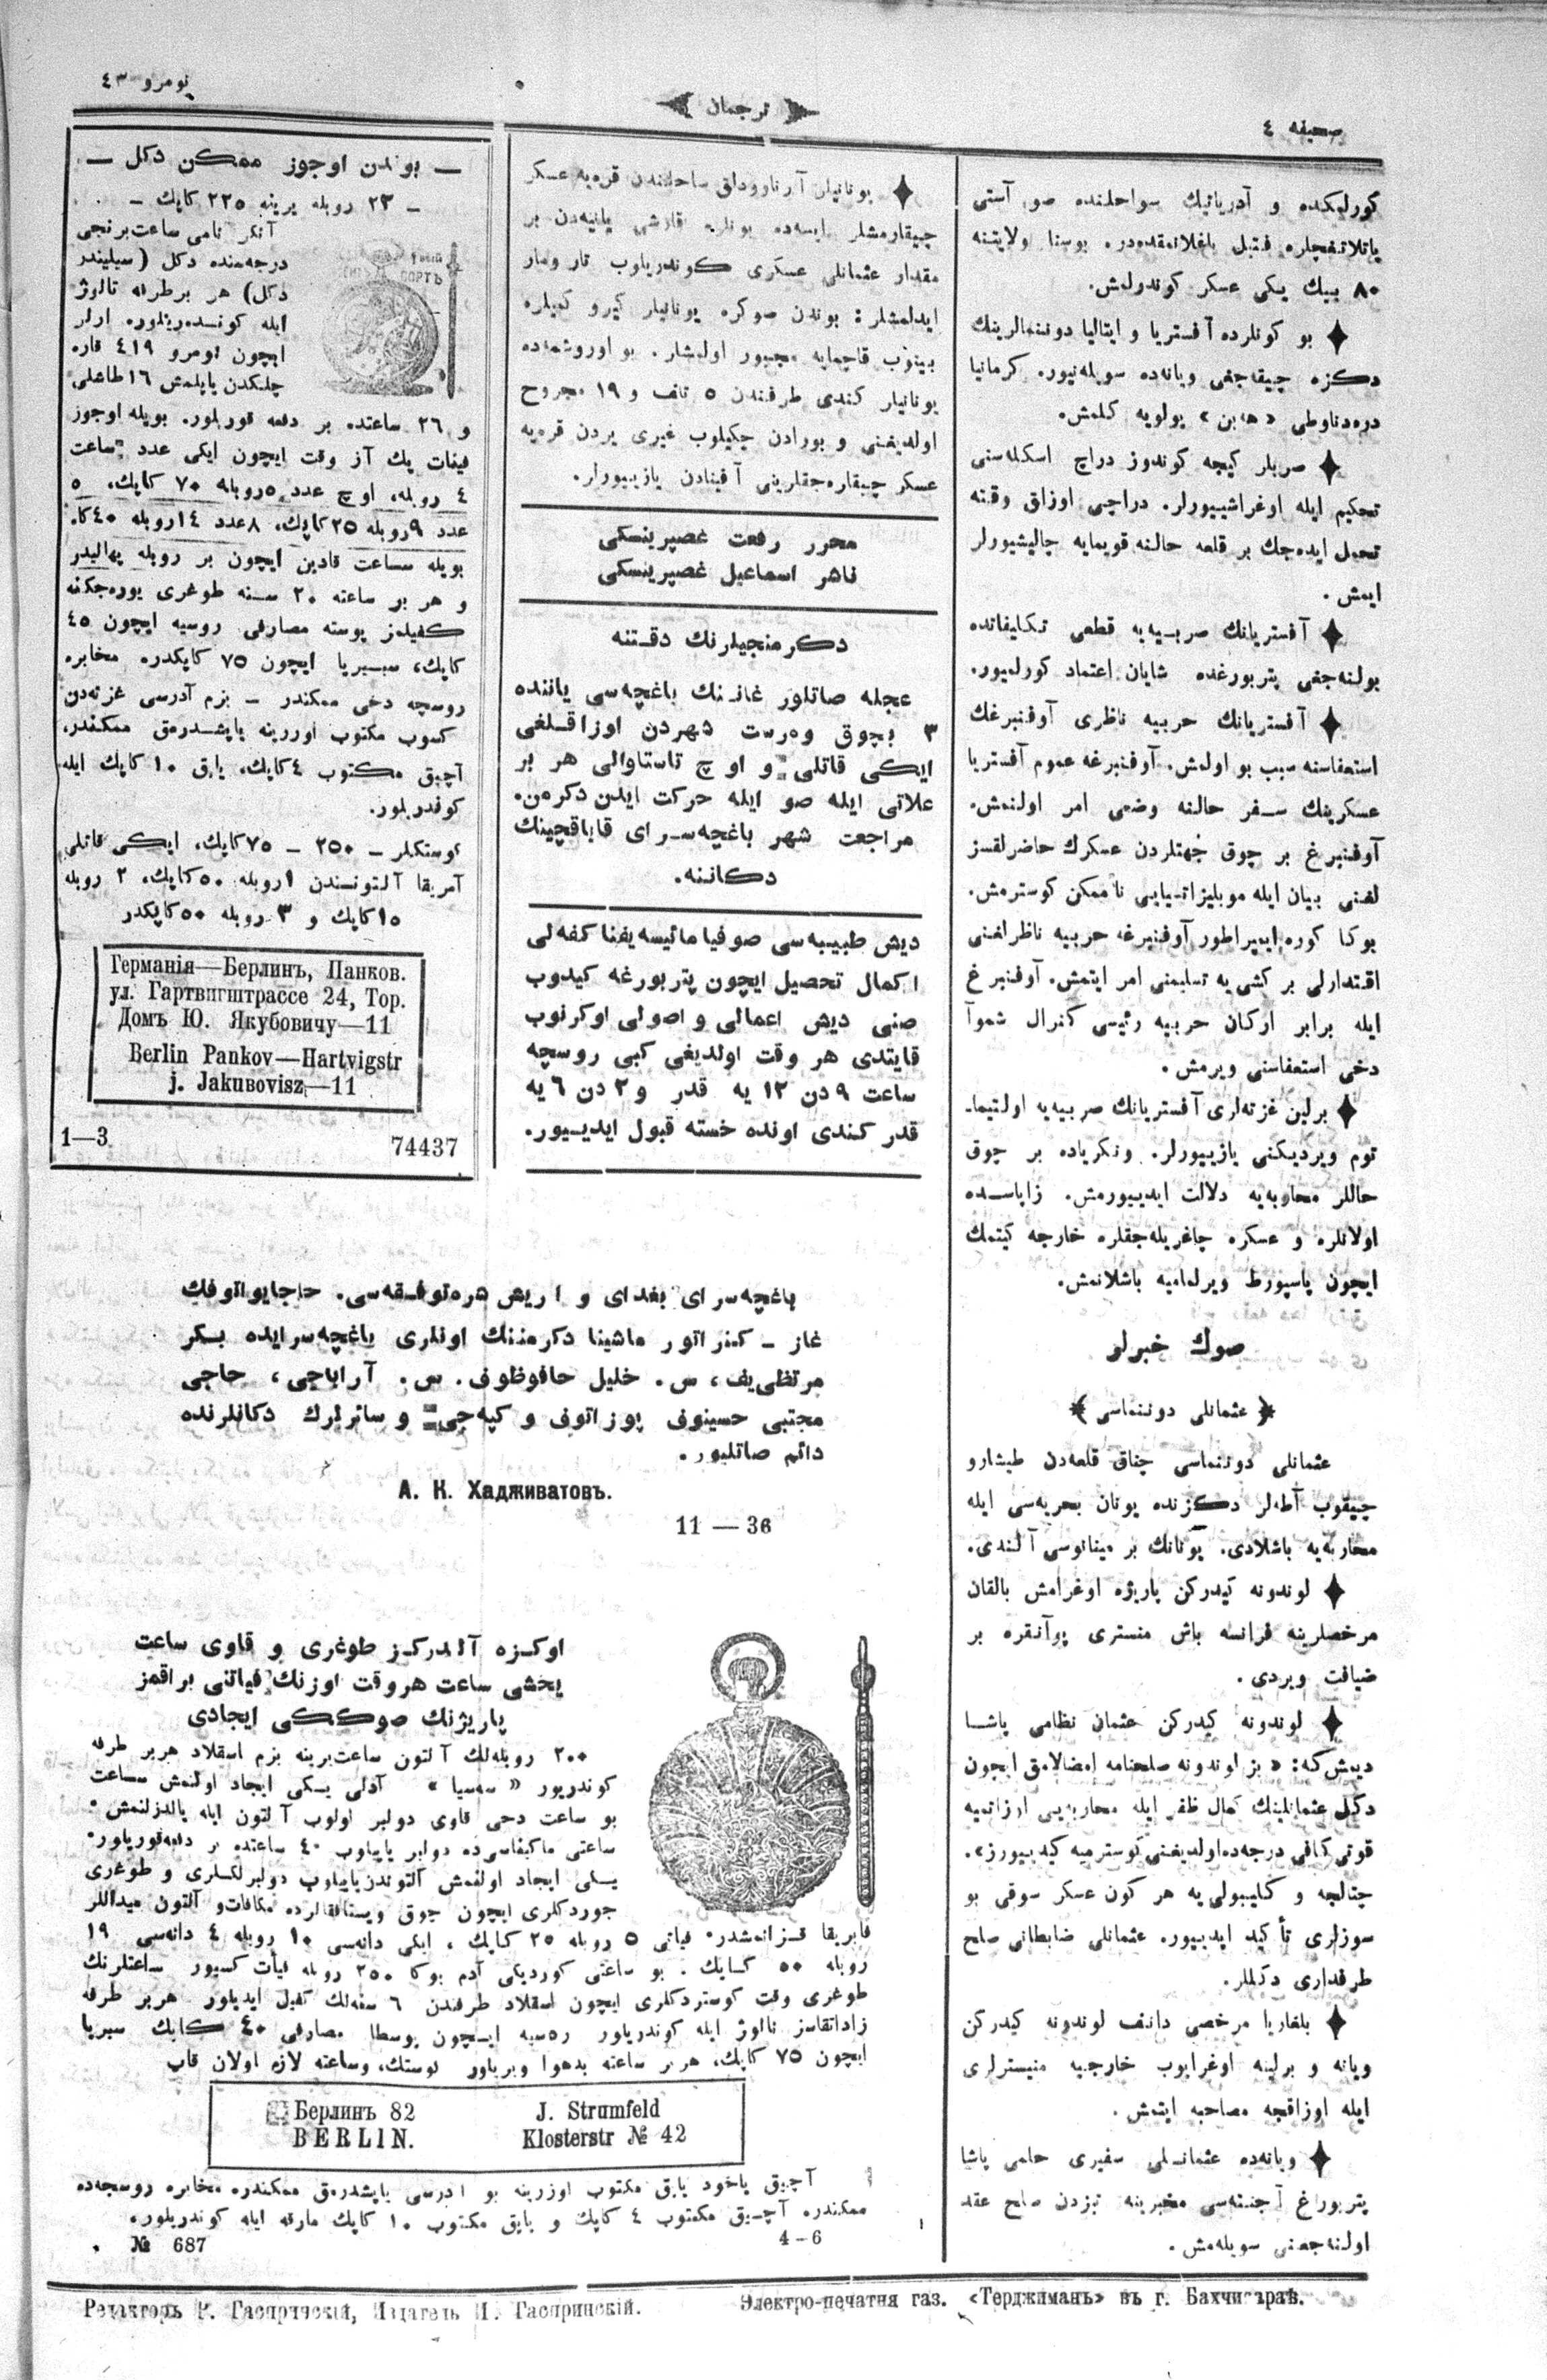 صحیفه ٤
ترجمان
نومرو ٤٣
كورلمكده و آدریاتیك سواحلنده صو آستی
پاتلاتغیچلره فتیل باغلانمقده‌دره بوسنا ولایتنه
٨٠ بیك یكی عسكر كوندرلمش.
بو كونلرده آفستریا و ایتالیا دوننمالرینك
دكزه چیقه‌جغی ویانه‌ده سویله‌نیور. كرمانیا
دره‌دناوطی «هه‌بن» یولویه كلمش.
صربلر كیچه كوندوز دراچ اسكله‌سنی
تحكیم ایله اوغراشییورلر. دراچی اوزاق وقته
تحمل ایده‌جك بر قلعه حالنه قویمایه چالیشیورلر
ایمش.
آفستریانك صربیه‌یه قطعی تكلیفاتده
بولنه‌جغی پتربورغده شایان اعتماد كورلمیور.
آفستریانك حربیه ناظری آوفنبرغك
استعفاسنه سبب بو اولمش. آوفنبرغه عموم آفستریا
عسكرینك سفر حالنه وضعی امر اولنمش.
آوفنبرغ بر چوق جهتلردن عسكرك حاضرلقسز
لغنی بیان ایله موبلیزاتسیایی ناممكن كوسترمش.
بوكا كوره ایمپراطور آوفنبرغه حربیه ناظرلغنی
اقتدارلی بر كشی‌یه تسلیمنی امر ایتمش. آوفنبرغ
ایله برابر اركان حربیه رئیسی كنرال شموآ
دخی استعفاسنی ویرمش.
برلین غزته‌لری آفستریانك صربیه‌یه اولتیما-
توم ویردیكنی یازییورلر. ونكریاده بر چوق
حاللر محاربه‌یه دلالت ایدییورمش. زاپاسده
اولانلره و عسكره چاغریله‌جقلره خارجه كیتمك
ایچون پاسپورط ویرلمامیه باشلانمش.
صوك خبرلر
عثمانلی دوننماسی
عثمانلی دوننماسی چناق قلعه‌دن طیشارو
چیقوب آطه‌لر دكزنده یونان بحریه‌سی ایله
محاربه‌یه باشلادی. یونانك بر مینانوسی آلندی.
لوندونه كیدركن پاریژه اوغرامش بالقان
مرخصلرینه فرانسه باش منستری پوآنقره بر
ضیافت ویردی.
لوندونه كیدركن عثمان نظامی پاشا
دیمش كه: «بز لوندونه صلحنامه امضالامق ایچون
دكل عثمانلینك كمال ظفر ایله محاربه‌یی ارزاتمیه
قوتی كافی درجه‌ده اولدیغنی كوسترمیه كیدییورز».
چتالجه و كلیبولی‌یه هر كون عسكر سوقی بو
سوزلری تأكید ایدییور. عثمانلی ضابطانی صلح
طرفداری دكللر.
بلغاریا مرخصی دانف لوندونه كیدركن
ویانه و برلینه اوغرایوب خارجیه منیسترلری
ایله اوزاقجه مصاحبه ایتمش.
ویانه‌ده عثمانلی سفیری حلمی پاشا
پتربورغ آجنته‌سی مخبرینه تیزدن صلح عقد
اولنه‌جغنی سویله‌مش.
یونانیلر آرناوودلق ساحلندن قره‌یه عسكر
چیقارمشلر ایسه‌ده بونلره قارشی یانیه‌دن بر
مقدار عثمانلی عسكری كوندریلوب تار و مار
ایدلمشلر: بوندن صوكره یونانیلر كیرو كمیلره
بینوب قاچمایه مجبور اولمشلر. بو اوروشمه‌ده
یونانیلر كندی طرفندن ٥ تلف و ١٩ مجروح
اولدیغنی و بورادن چكیلوب غیری یردن قره‌یه
عسكر چیقاره‌جقلرینی آفینادن یازییورلر.
محرر رفعت غصپرینسكی
ناشر اسماعیل غصپرینسكی
دكرمنجیلرنك دقتنه
عجله صاتلور غانینك باغچه‌سی یاننده
٣ بچوق وه‌رست شهردن اوزاقلغی
ایكی قاتلی و اوچ تاستاوالی هر بر
علاتی ایله صو ایله حركت ایدن دكرمن.
مراجعت شهر باغچه‌سرای قاباقچینك
دكاننه.
دیش طبیبه‌سی صوفیا مائیسه‌یفنا كفه‌لی
اكمال تحصیل ایچون پتربورغه كیدوب
صنی دیش اعمالی و اصولی اوكرنوب
قایتدی هر وقت اولدیغی كبی روسچه
ساعت ٩ دن ١٢ یه قدر و ٢ دن ٦ یه
قدر كندی اونده خسته قبول ایدییور.
— بوندن اوجوز ممكن دكل —
— ٢٣ روبله یرینه ٢٢٥ كاپك —
آنكر نامی ساعت برنجی
درجه‌سنده دكل (سیلیندر
دكل) هر بر طرفه نالوژ
ایله كونسده‌ریلوره ارلر
ایچون نومرو ٤١٩ قاره
چلیكدن یاپلمش ١٦ طاشلی
و ٢٦ ساعتده بر دفعه قوریلور. بویله اوجوز
فیئات پك آز وقت ایچون ایكی عدد ساعت
٤ روبله، اوچ عدد ٥ روبله ٧٠ كاپك، ٥
عدد ٩ روبله ٢٥ كاپك، ٨ عدد ١٤ روبله ٤٠ كا.
بویله ساعت قادین ایچون بر روبله پهالیدر
و هر بر ساعته ٢٠ سنه طوغری یوره‌جكنه
كفیلمز پوسته مصارفی روسیه ایچون ٤٥
كاپك، سبیریا ایچون ٧٥ كاپكدره مخابره
روسچه دخی ممكندر — بزم آدرسی غزته‌دن
كسوب مكتوب اوزرینه یاپشدرمق ممكندر،
آچیق مكتوب ٤ كاپك، یاپق ١٠ كاپك ایله
كوندریلور.
توستكلر — ٢٥٠ — ٧٥ كاپك، ایكی قاتلی
آمریقا آلتونسندن ١ روبله ٥٠ كاپك، ٢ روبله
١٥ كاپك و ٣ روبله ٥٠ كاپكدر
Германія—Берлинъ, Панков.
ул. Гартвигштрассе 24, Тор.
Домъ Ю. Якубовичу—11
Berlin Pankov—Hartvigstr
j. Jakubovisz—11
1—3
74437
باغچه‌سرای بغدای و اریش فره‌توفقه‌سی. حاجایواتوفك
غاز — كنراتور ماشینا دكرمننك اونلری باغچه‌سرایده بكر
مرتظی‌یف، س. خلیل حافوظوف. س. آراباجی، حاجی
مجتبی حسینوف پوزاتوف و كپه‌جی و سائرلرك دكانلرنده
دائم صاتلیور.
А. К. Хадживатовъ.
11 — 36
اوكزه آلدركز طوغری و قاوی ساعت
یخشی ساعت هر وقت اوزنك فیاتنی براقمز
پاریژنك صوككی ایجادی
٢٠٠ روبله‌لك آلتون ساعت یرینه بزم اسقلاد هر بر طرفه
كوندریور «سه‌سیا» آدلی یكی ایجاد اولنمش ساعت
بو ساعت دخی قاوی دولبر اولوب آلتون ایله یالدزلنمش.
یكی ایجاد اولنمش آلتوندن یاپیلوب دولبرلكلری و طوغری
جوردكلری ایچون چوق ویستافقالرده مكافات و آلتون میداللر
فابریقا قزانمشدر. فیاتی ٥ روبله ٢٥ كاپك، ایكی دانه‌سی ١٠ روبله ٤ دانه‌سی ١٩
روبله ٥٠ كاپك. بو ساعتی كوردیكی آدم بوكا ٢٥٠ روبله فیأت كسیور ساعتلرنك
طوغری وقت كوستردكلری ایچون اسقلاد طرفندن ٦ سنه‌لك كفیل ایدیلور هر بر طرفه
زاداتقاسز نالوژ ایله كوندریلور ره‌سیه ایچون پوسطا مصارفی ٤٠ كاپك سبریا
ایچون ٧٥ كاپك، هر بر ساعته بدهوا ویریلور توستك، وساعته لازم اولان قاپ
Берлинъ 82
BERLIN.
J. Strumfeld
Klosterstr № 42
آچیق یاخود یاپق مكتوب اوزرینه بو ادرسی یاپشدرمق ممكندره مخابره روسجه‌ده
ممكندره آچیق مكتوب ٤ كاپك و یاپق مكتوب ١٠ كاپك مارقه ایله كوندریلور.
№ 687
4—6
Редакторъ Р. Гаспринскій, Издатель И. Гаспринскій.
Электро-печатня газ. «Терджиманъ» въ г. Бахчисараѣ.